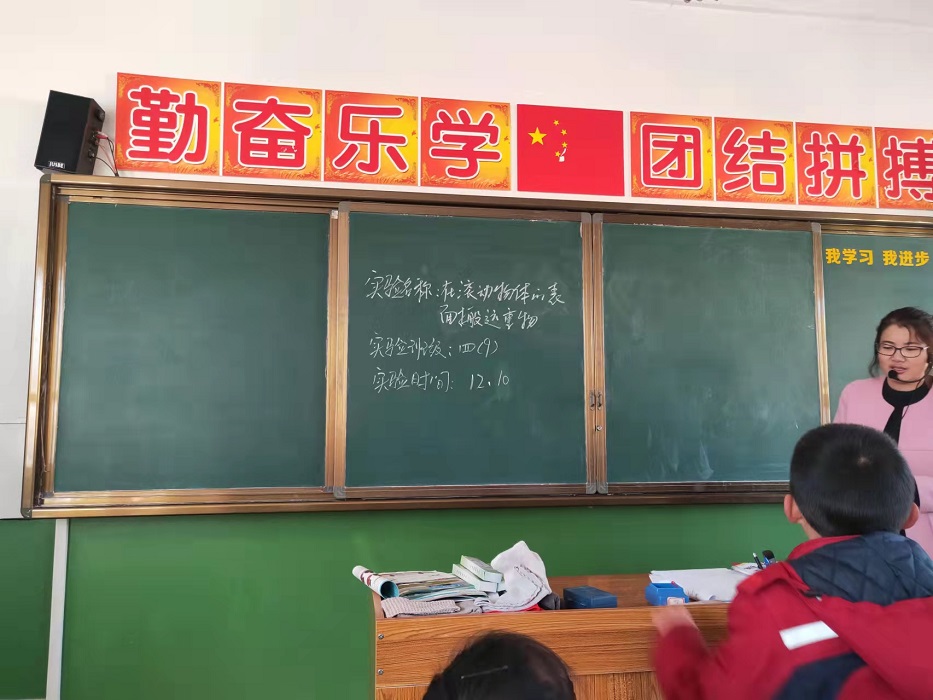 勤奋乐学 团结拼搏
我学习 我进步
实验名称:在滚动物体的表
面搬运重物
实验班级:四(9)
实验时间:12.10